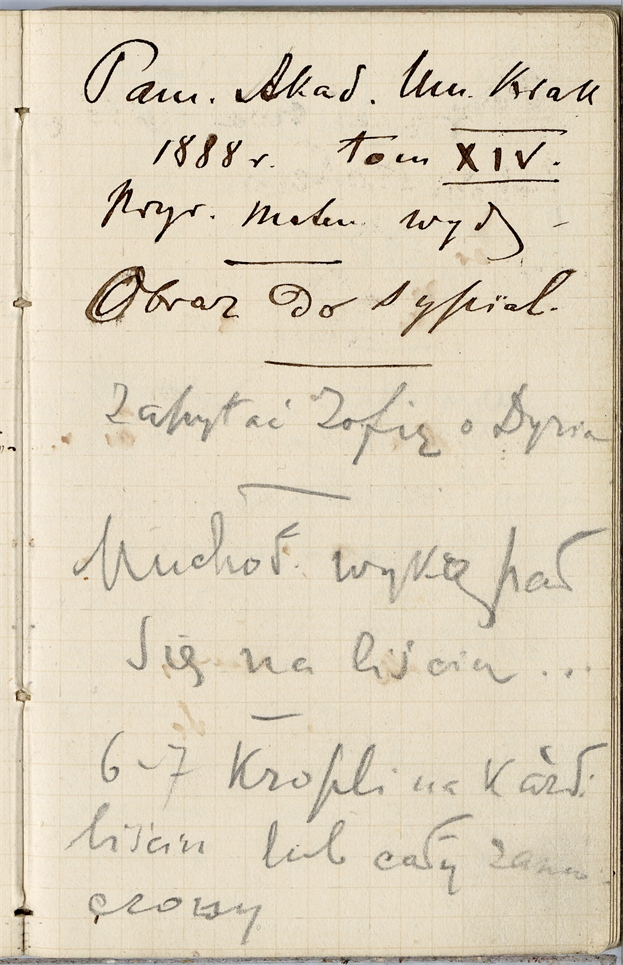 Pam. Akad. Um. Krak
1888 r. tom XIV.
Przyr. Matem wydz
Obraz do sypial.
Zapytać Zofię o
Muchoł. wykąpał
się na liściu ...
6-7 Kropli na Każd.
liściu lub cały